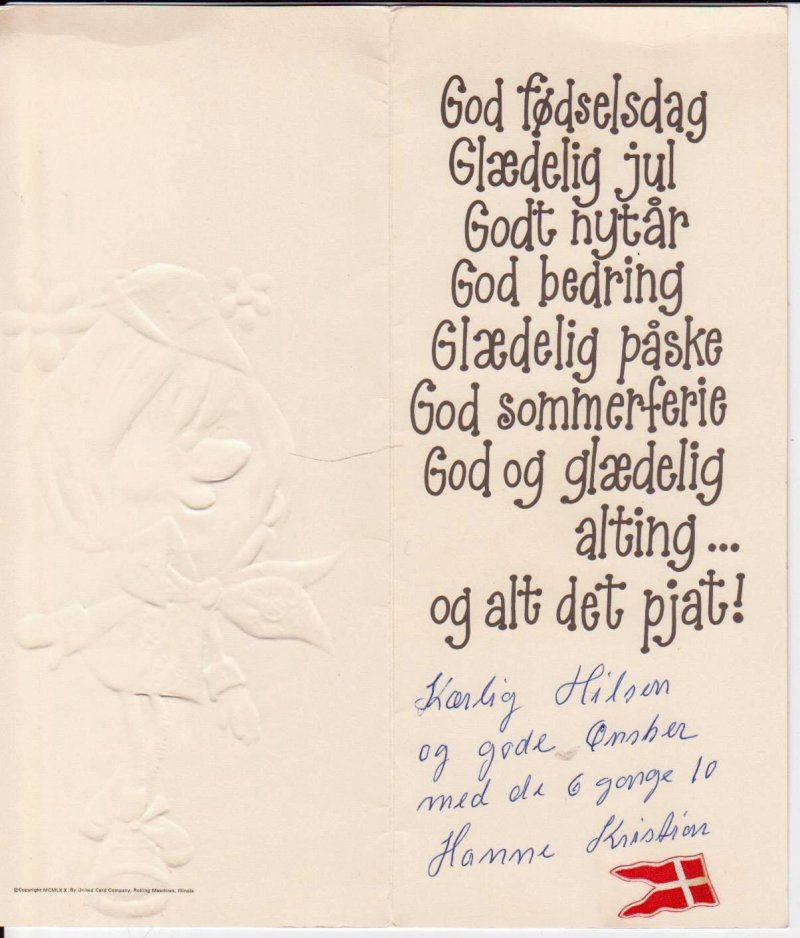 God fødselsdag
Glædelig jul
Godt nytår
God bedring
Glædelig påske
God sommerferie
God og glædelig
alting...
og alt det pjat!
Kærlig Hilsen
og gode Ønsker
med de 6 gange 10
Hanne Kristian
©Copyright MCMLXX By United Card Company, Rolling Meadows, Illinois